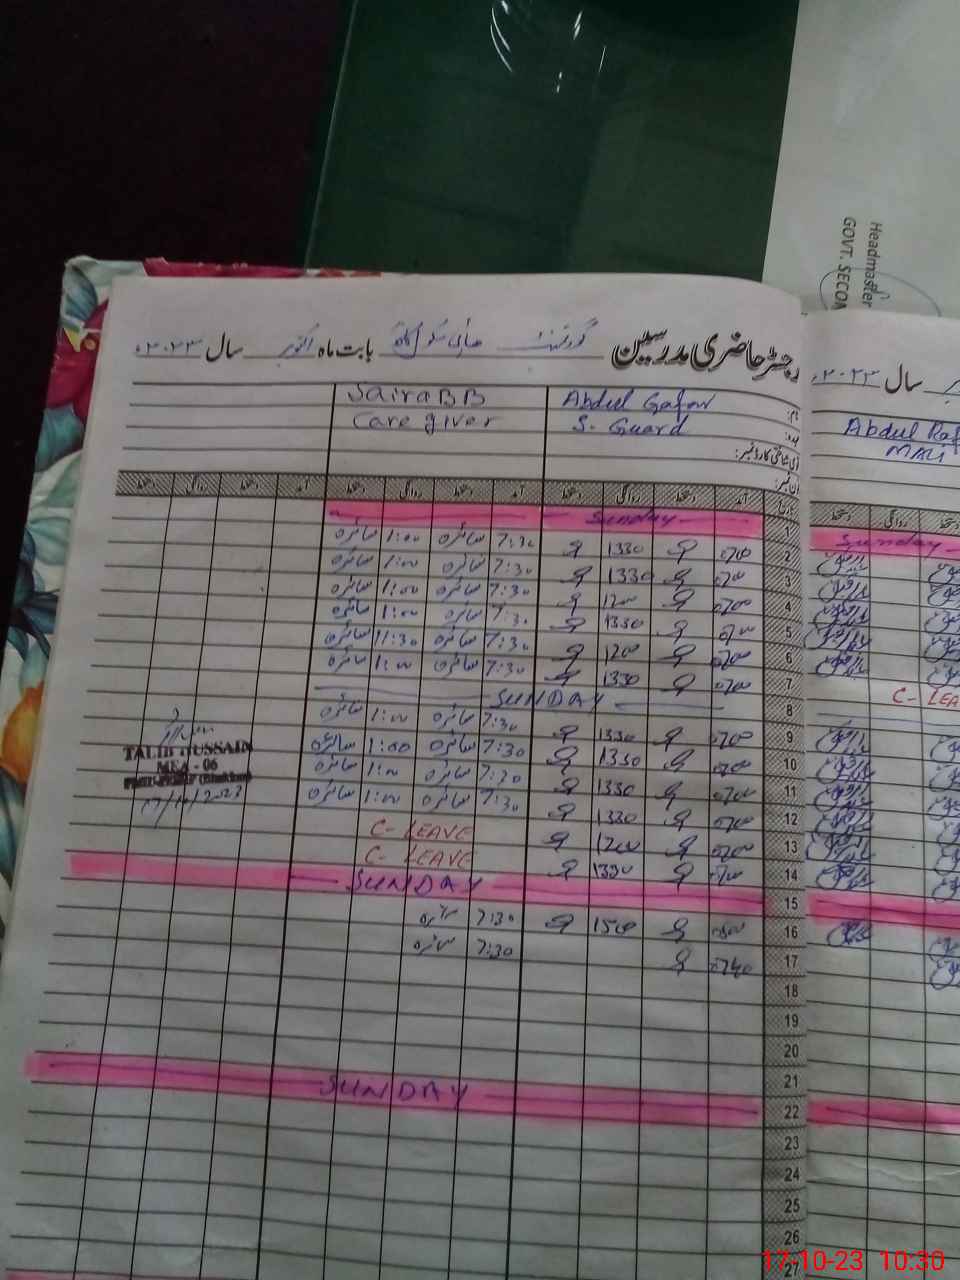 Headmaster
GOVT. SECON
رجسٹر حاضری مدرسین گورنمنٹ ہائی سکول بابت ماہ اکتوبر سال ۲۰۲۳ء
سال ۲۰۲۳ء
نام: Abdul Gafar Saira BB
عہدہ: S. Guard Care giver
Abdul Raf
MALI
آمد دستخط روانگی دستخط آمد دستخط روانگی دستخط آمد دستخط روانگی دستخط
1 Sunday
Sunday
2 0700 1330 7:30 سائرہ 1:00 سائرہ
3 0700 1330 7:30 سائرہ 1:00 سائرہ
4 0700 1200 7:30 سائرہ 1:00 سائرہ
5 0700 1330 7:30 سائرہ 1:00 سائرہ
6 0700 1200 7:30 سائرہ 11:30 سائرہ
7 0700 1330 7:30 سائرہ 1:00 سائرہ
C- LEA
8 SUNDAY
9 0700 1330 7:30 سائرہ 1:00 سائرہ
10 0700 1330 7:30 سائرہ 1:00 سائرہ
11 0700 1330 7:30 سائرہ 1:00 سائرہ
12 0700 1330 7:30 سائرہ 1:00 سائرہ
13 0700 1200 C- LEAVE
14 0700 1330 C- LEAVE
15 SUNDAY
16 1500 7:30 سائرہ
17 0740 7:30 سائرہ
18
19
20
21
22 SUNDAY
23
24
25
26
27
TALIB HUSSAIN
MEA - 06
17/10/2023
17-10-23 10:30